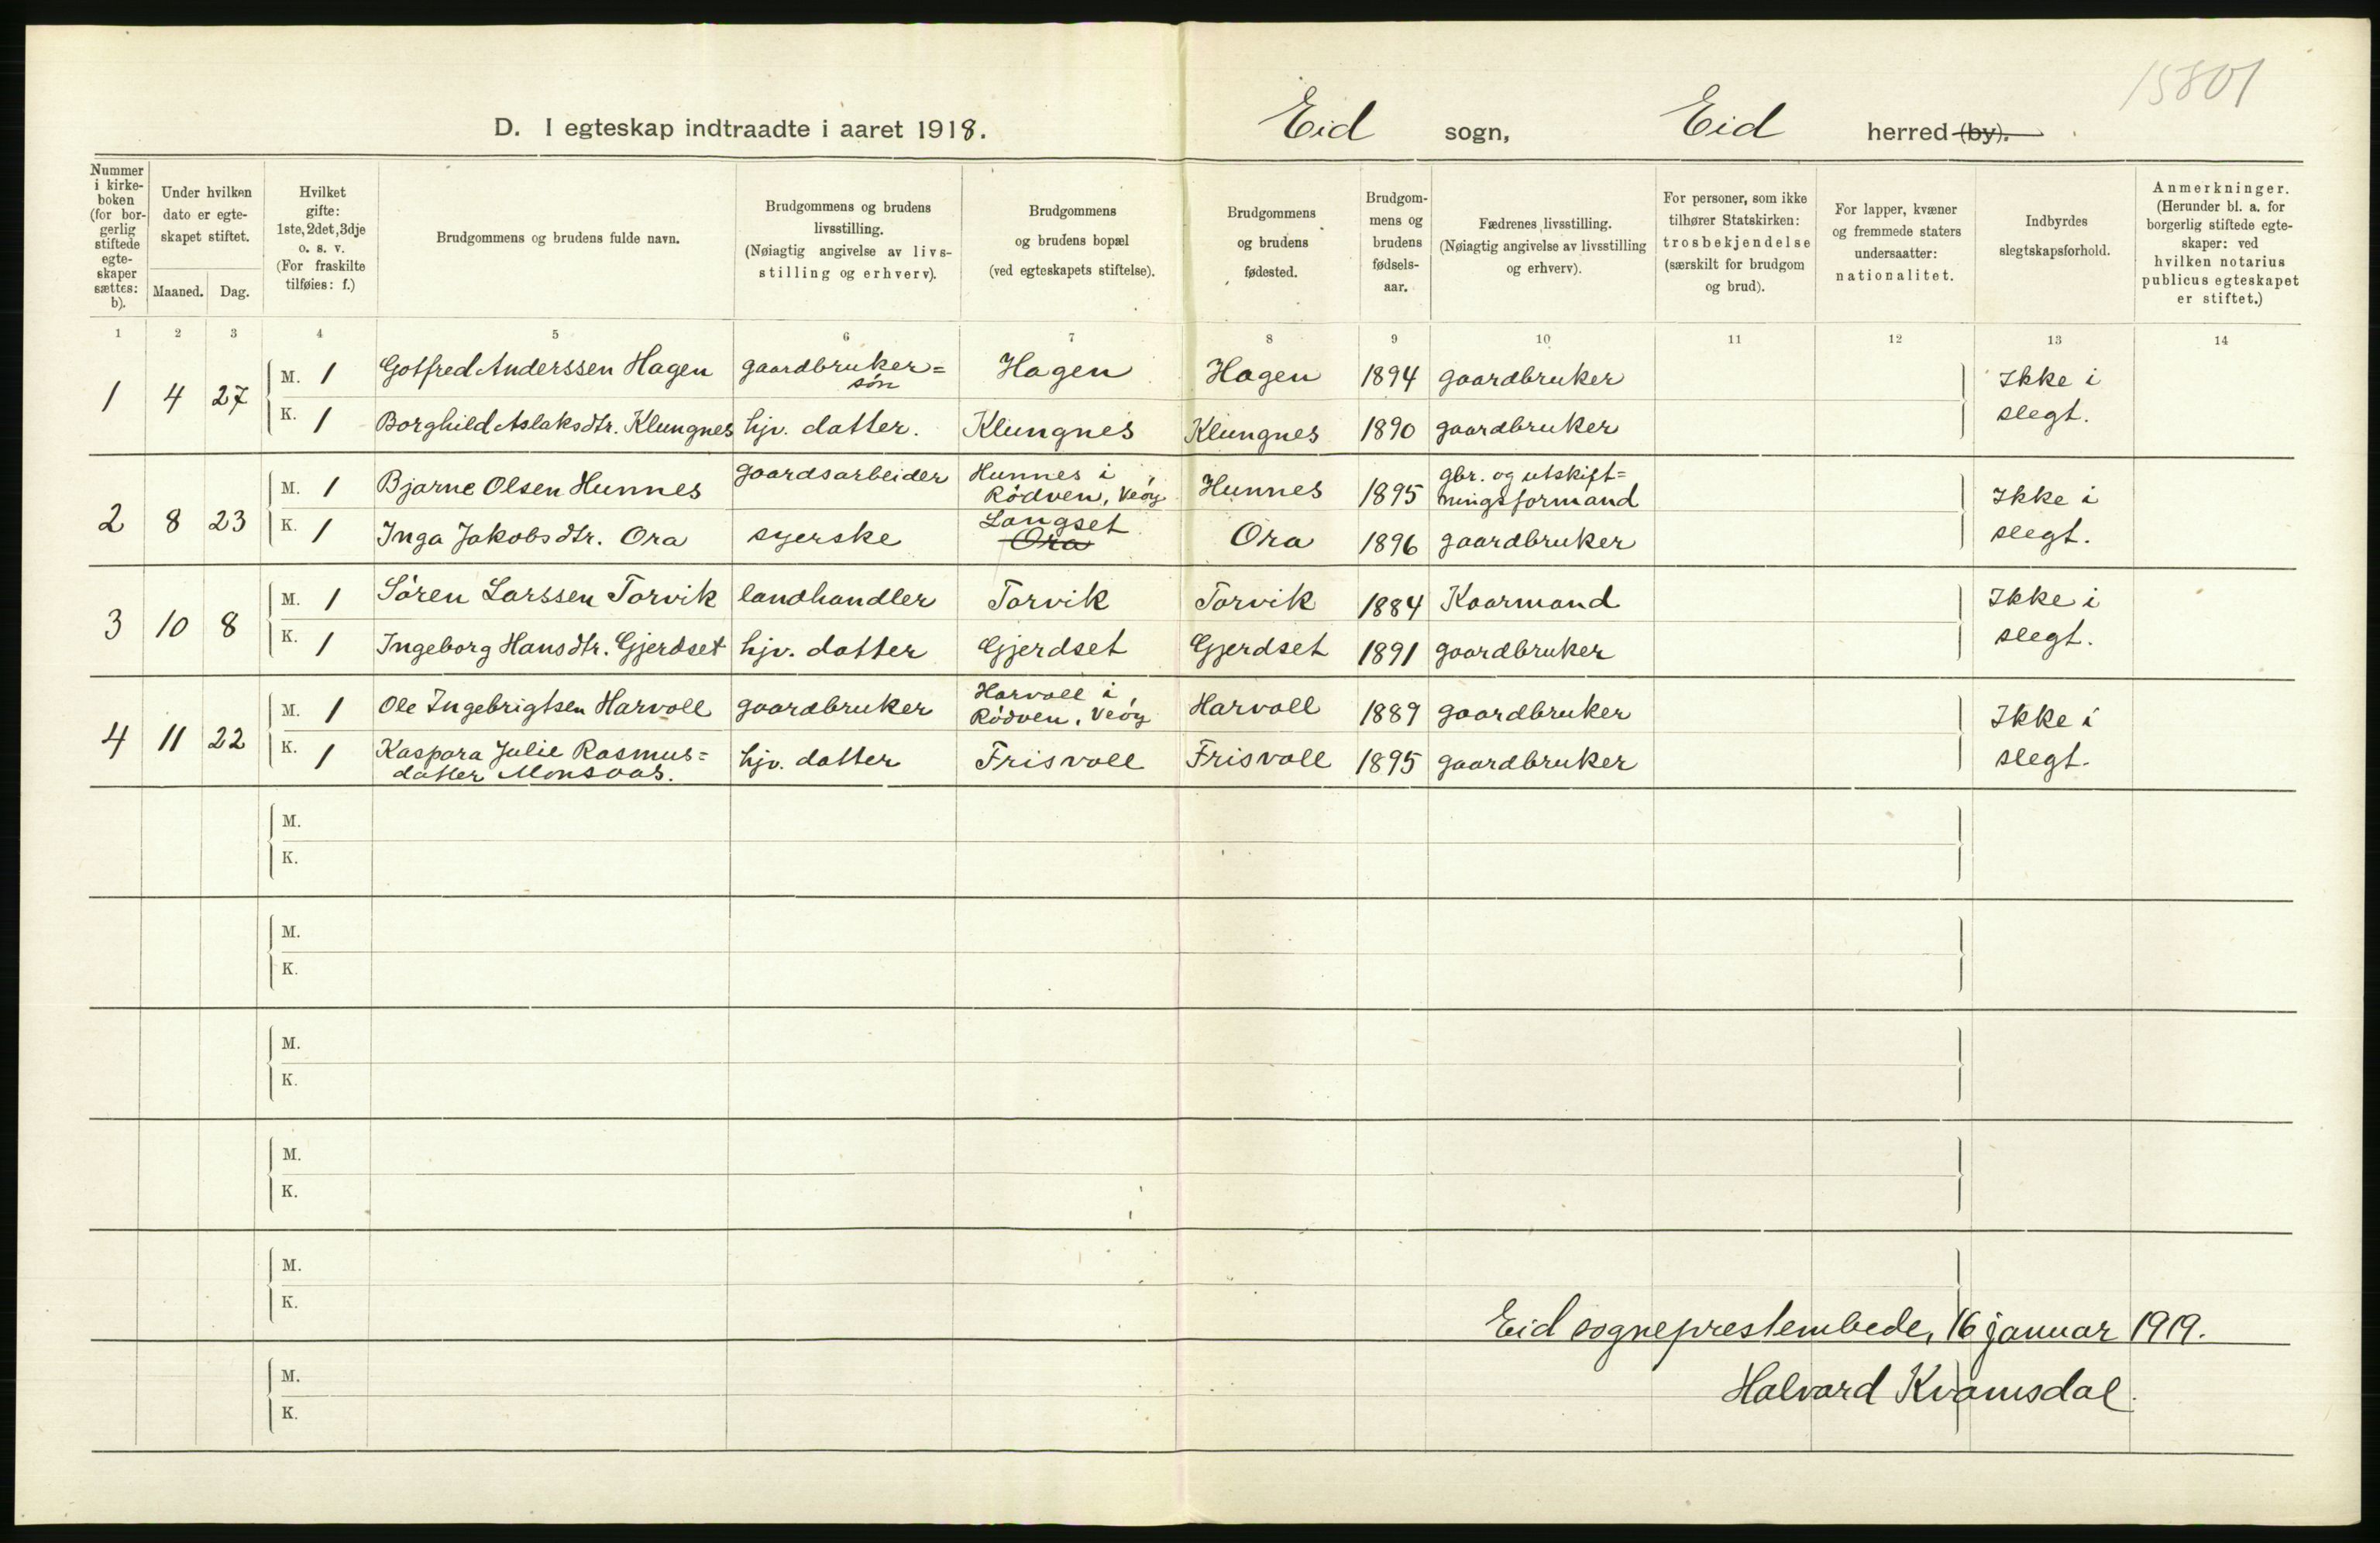 15801
D. I egteskap indtraadte i aaret 1918.
Eid sogn, Eid herred (by).
Nummer i kirke-boken (for bor-gerlig stiftede egte-skaper sættes: b).
Under hvilken dato er egte-skapet stiftet.
Maaned. Dag.
Hvilket gifte: 1ste, 2det, 3dje o. s. v. (For fraskilte tilføies: f.)
Brudgommens og brudens fulde navn.
Brudgommens og brudens livsstilling. (Nøiagtig angivelse av livs-stilling og erhverv).
Brudgommens og brudens bopæl (ved egteskapets stiftelse).
Brudgommens og brudens fødested.
Brudgom-mens og brudens fødsels-aar.
Fædrenes livsstilling. (Nøiagtig angivelse av livsstilling og erhverv).
For personer, som ikke tilhører Statskirken: trosbekjendelse (særskilt for brudgom og brud).
For lapper, kvæner og fremmede staters undersaatter: nationalitet.
Indbyrdes slegtskapsforhold.
Anmerkninger. (Herunder bl. a. for borgerlig stiftede egte-skaper: ved hvilken notarius publicus egteskapet er stiftet.)
1 2 3 4 5 6 7 8 9 10 11 12 13 14
1 4 27 M. 1 Gotfred Anderssen Hagen gaardbruker=søn Hagen Hagen 1894 gaardbruker Ikke i
K. 1 Borghild Aslaksdtr. Klungnes hjv. datter. Klungnes Klungnes 1890 gaardbruker slegt.
2 8 23 M. 1 Bjarne Olsen Hunnes gaardsarbeider Hunnes i Rödven, Veöy Hunnes 1895 gbr. og utskift=ningsformand Ikke i
K. 1 Inga Jakobsdtr. Ora syerske Langset Ora Ora 1896 gaardbruker slegt.
3 10 8 M. 1 Sören Larssen Torvik landhandler Torvik Torvik 1884 Kaarmand Ikke i
K. 1 Ingeborg Hansdtr. Gjerdset hjv. datter Gjerdset Gjerdset 1891 gaardbruker slegt.
4 11 22 M. 1 Ole Ingebrigtsen Harvoll gaardbruker Harvoll i Rödven, Veöy Harvoll 1889 gaardbruker Ikke i
K. 1 Kaspara Julie Rasmus=datter Monsaas. hjv. datter Frisvoll Frisvoll 1895 gaardbruker slegt.
M.
K.
M.
K.
M.
K.
M.
K.
M.
K.
Eid sogneprestembede, 16 januar 1919.
M.
Halvard Kvamsdal.
K.